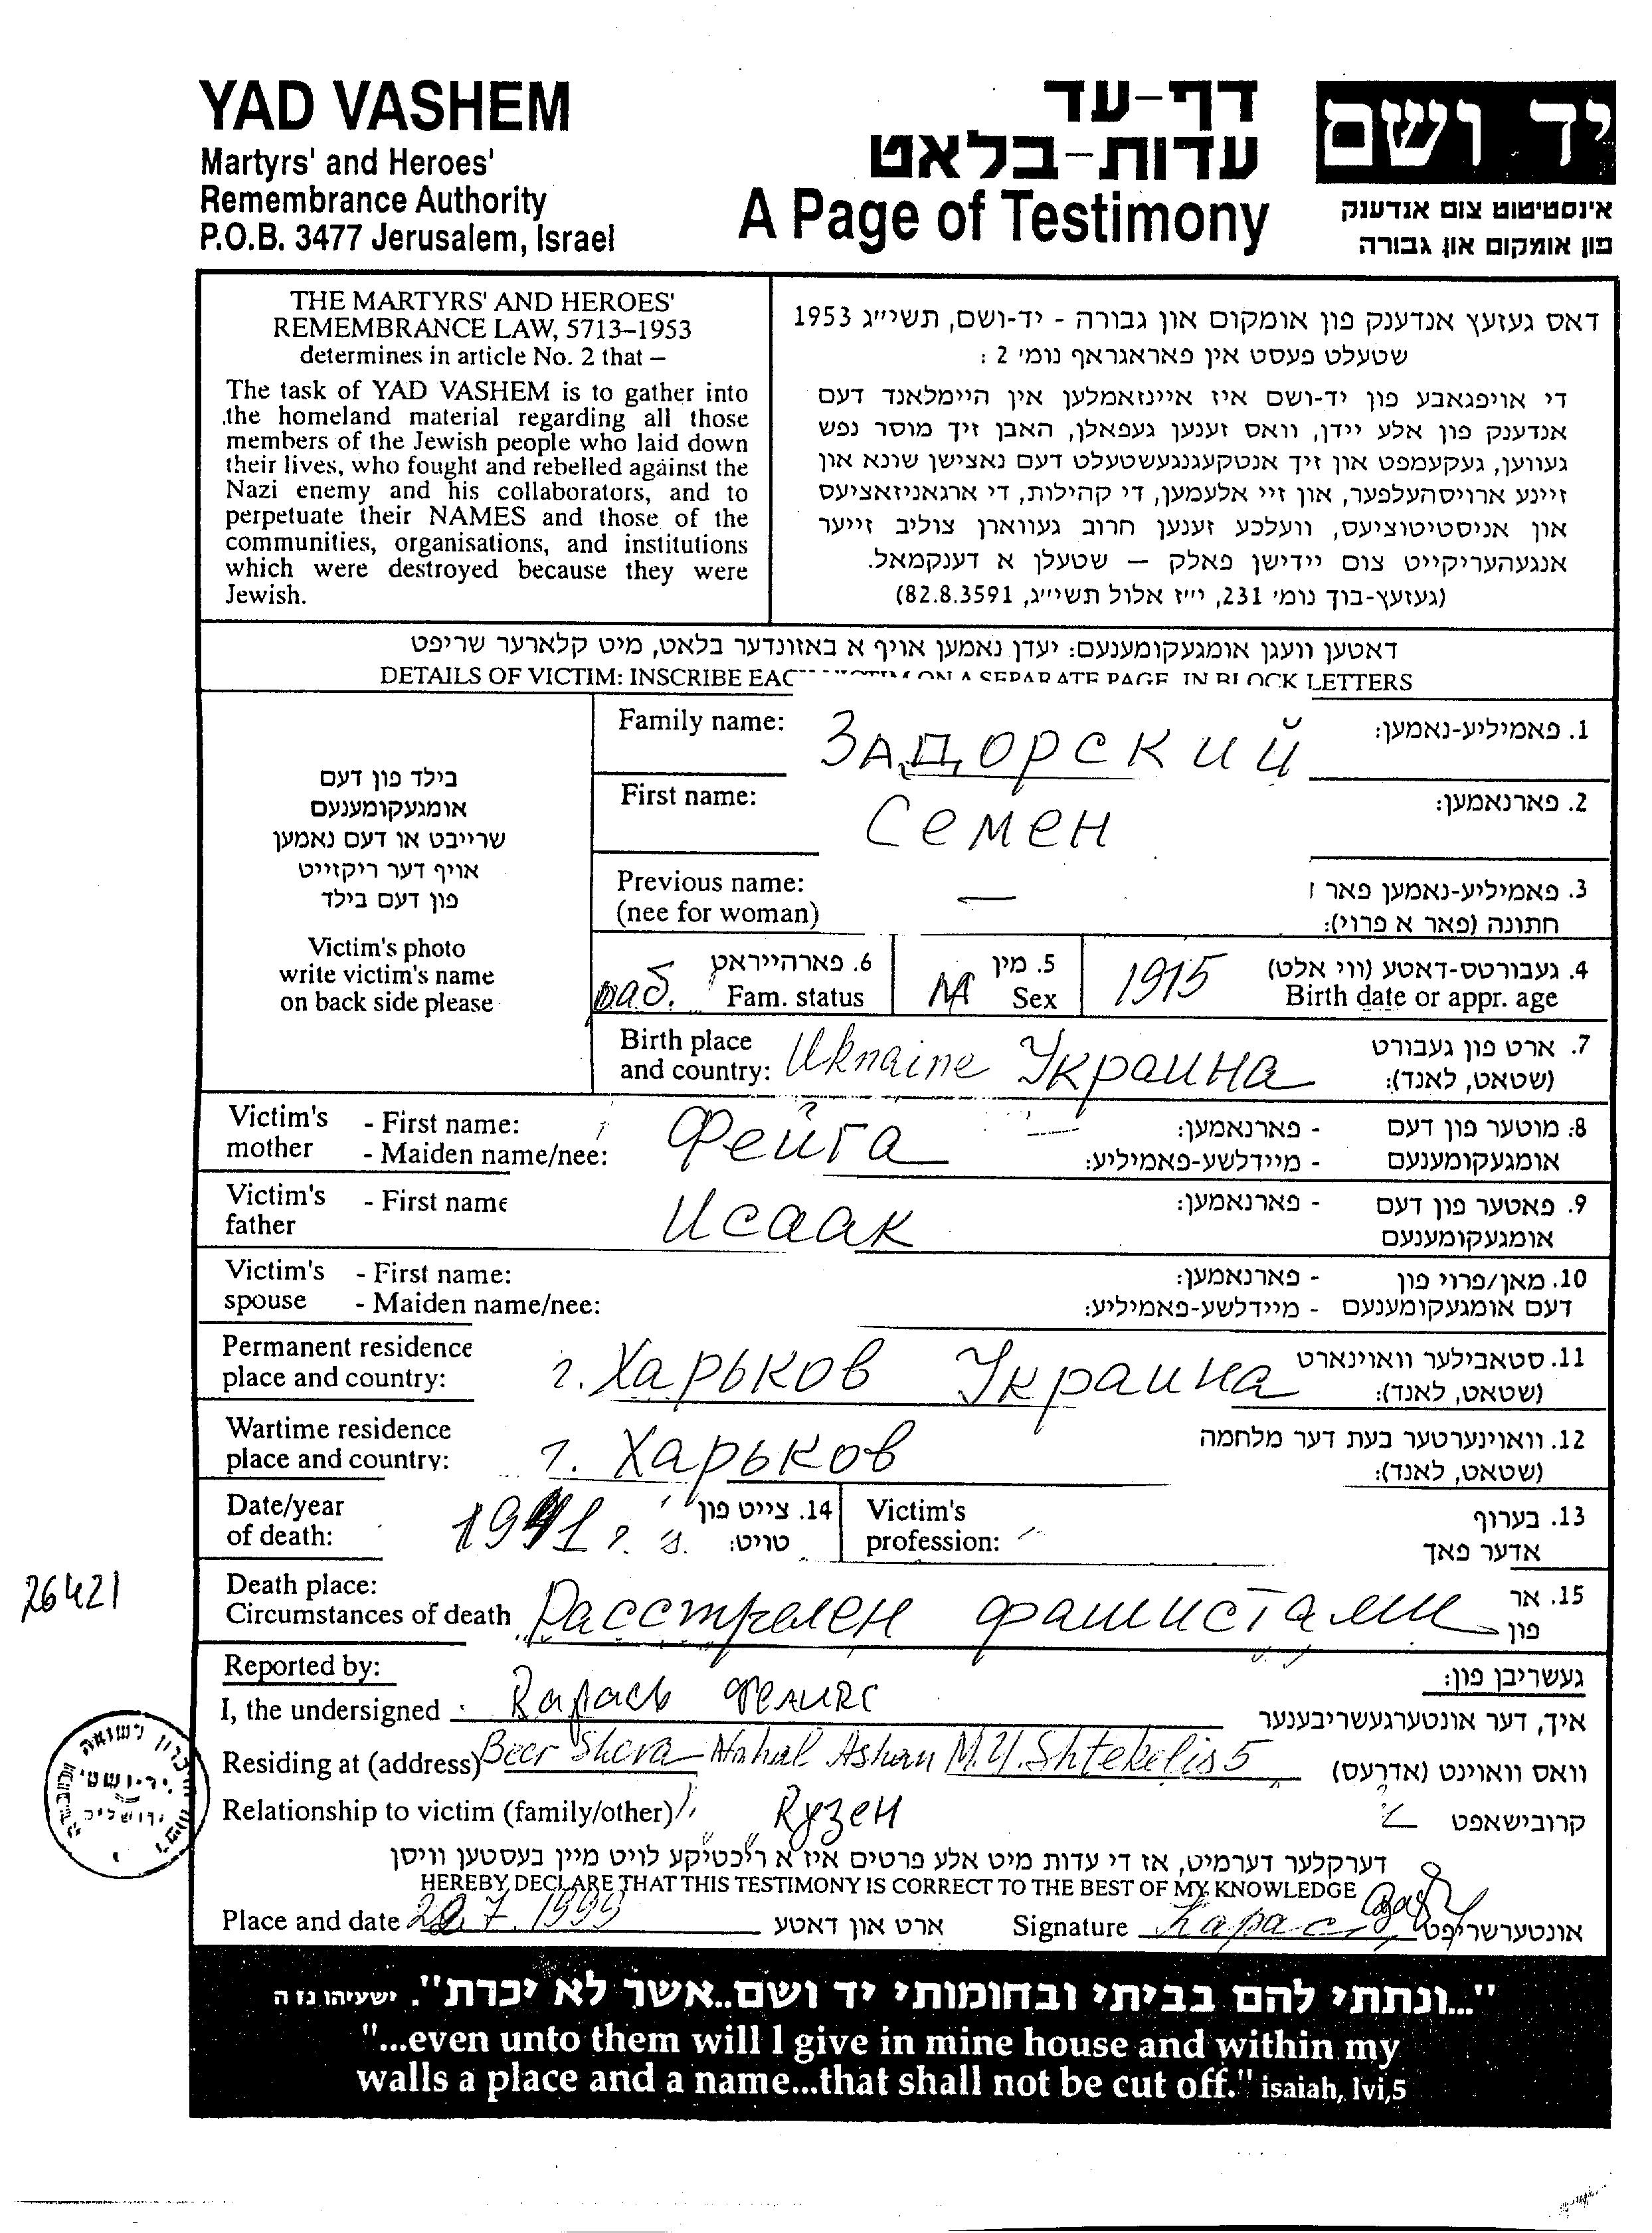 YAD VASHEM
Martyrs' and Heroes'
Remembrance Authority
P.O.B. 3477 Jerusalem, Israel
דף-עד
עדות-בלאט
A Page of Testimony
יד ושם
אינסטיטוט צום אנדענק
פון אומקום און גבורה
THE MARTYRS' AND HEROES'
REMEMBRANCE LAW, 5713–1953
determines in article No. 2 that –
The task of YAD VASHEM is to gather into
the homeland material regarding all those
members of the Jewish people who laid down
their lives, who fought and rebelled against the
Nazi enemy and his collaborators, and to
perpetuate their NAMES and those of the
communities, organisations, and institutions
which were destroyed because they were
Jewish.
דאס געזעץ אנדענק פון אומקום און גבורה - יד-ושם, תשי״ג 1953
שטעלט פעסט אין פאראגראף נומ׳ 2 :
די אויפגאבע פון יד-ושם איז איינזאמלען אין היימלאנד דעם
אנדענק פון אלע יידן, וואס זענען געפאלן, האבן זיך מוסר נפש
געווען, געקעמפט און זיך אנטקעגנגעשטעלט דעם נאצישן שונא און
זיינע ארויסהעלפער, און זיי אלעמען, די קהילות, די ארגאניזאציעס
און אניסטיטוציעס, וועלכע זענען חרוב געווארן צוליב זייער
אנגעהעריקייט צום יידישן פאלק – שטעלן א דענקמאל.
(געזעץ-בוך נומ׳ 231, י״ז אלול תשי״ג, 82.8.3591)
דאטען וועגן אומגעקומענעם: יעדן נאמען אויף א באזונדער בלאט, מיט קלארער שריפט
DETAILS OF VICTIM: INSCRIBE EAC ON A SEPARATE PAGE, IN BLOCK LETTERS
בילד פון דעם
אומגעקומענעם
שרייבט או דעם נאמען
אויף דער ריקזייט
פון דעם בילד
Victim's photo
write victim's name
on back side please
Family name: ЗАДОРСКИЙ 1. פאמיליע-נאמען:
First name: Семен 2. פארנאמען:
Previous name: — 3. פאמיליע-נאמען פאר
(nee for woman) חתונה (פאר א פרוי):
6. פארהייראט 5. מין 1915 4. געבורטס-דאטע (ווי אלט)
Fam. status М Sex Birth date or appr. age
Birth place Ukraine Украина 7. ארט פון געבורט
and country: (שטאט, לאנד):
Victim's - First name: Фейга - פארנאמען: 8. מוטער פון דעם
mother - Maiden name/nee: - מיידלשע-פאמיליע: אומגעקומענעם
Victim's - First name Исаак - פארנאמען: 9. פאטער פון דעם
father אומגעקומענעם
Victim's - First name: - פארנאמען: 10. מאן/פרוי פון
spouse - Maiden name/nee: - מיידלשע-פאמיליע: דעם אומגעקומענעם
Permanent residence г. Харьков Украина 11. סטאבילער וואוינארט
place and country: (שטאט, לאנד):
Wartime residence г. Харьков 12. וואוינערטער בעת דער מלחמה
place and country: (שטאט, לאנד):
Date/year 1941 г. 14. צייט פון Victim's 13. בערוף
of death: טויט: profession: אדער פאך
26421
Death place: Расстрелен фашистами 15. אר
Circumstances of death פון
Reported by: געשריבן פון:
I, the undersigned Карась Феликс איך, דער אונטערגעשריבענער
Residing at (address) Beer Sheva Nahal Ashan M.Y. Shtekelis 5 וואס וואוינט (אדרעס)
Relationship to victim (family/other) Кузен קרובישאפט
דערקלער דערמיט, אז די עדות מיט אלע פרטים איז א ריכטיקע לויט מיין בעסטען וויסן
HEREBY DECLARE THAT THIS TESTIMONY IS CORRECT TO THE BEST OF MY KNOWLEDGE
Place and date 20.7.1999 ארט און דאטע Signature Карась אונטערשריפט
"...ונתתי להם בביתי ובחומותי יד ושם..אשר לא יכרת". ישעיהו נז ה
"...even unto them will I give in mine house and within my
walls a place and a name...that shall not be cut off." isaiah, lvi,5